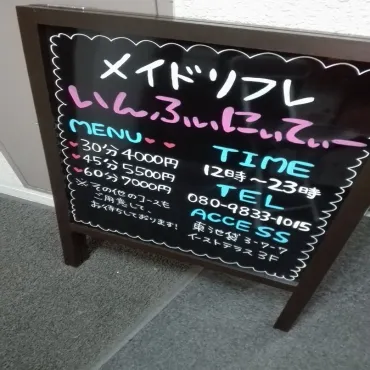 メイドリフレ
いんふぃにぃてぃー
MENU♥♥
♥30分4000円
♥45分5500円
♥60分7000円
※その他のコースも
ご用意して
お待ちしております!
TIME
12時〜23時
TEL
080-9833-1015
ACCESS
東池袋3-7-7
イーストテラス3F